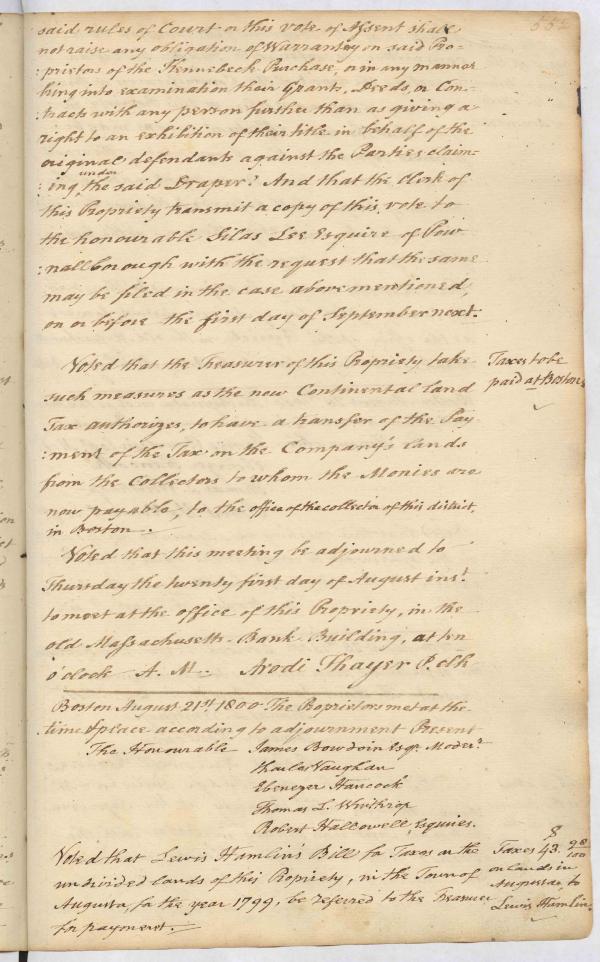 552
said rules of Court or this vote of Assent shall
not raise any obligation of Warrantey on said Pro=
:prietors of the Kennebeck Purchase, or in any manner
bring into examination their Grants, Deeds, or Con=
:tracts with any person further than as giving a
right to an exhibition of their title in behalf of the
original defendants against the Parties claim=
:ing under the said Draper? And that the Clerk of
this Propriety transmit a copy of this vote to
the honourable Silas Lee Esquire of Pow
:nallborough with the request that the same
may be filed in the case above mentioned,
on or before the first day of September next:
Voted that the Treasurer of this Propriety take
such measures as the new Continental land
Tax authorizes, to have a transfer of the Pay
:ment of the Tax on the Company's lands
from the Collectors to whom the Monies are
now payable, to the office of the collector of this district,
in Boston.
Taxes to be
paid at Boston
Voted that this meeting be adjourned to
Thursday the twenty first day of August inst.
to meet at the office of this Propriety, in the
old Massachusetts Bank Building, at ten
o'clock A. M. Arodi Thayer P. clk
Boston August 21st 1800 The Proprietors met at the
time & place according to adjournment Present
The Honourable James Bowdoin Esqr. Moder.r
Charles Vaughan
Ebenezer Hancock
Thomas L. Winthrop
Robert Hallowell, Esquires.
Voted that Lewis Hamlin's Bill for Taxes on the
undivided lands of this Propriety, in the Town of
Augusta, for the year 1799, be referred to the Treasurer
for payment.
$
Taxes 43. 98/100
on lands in
Augusta, to
Lewis Hamlin